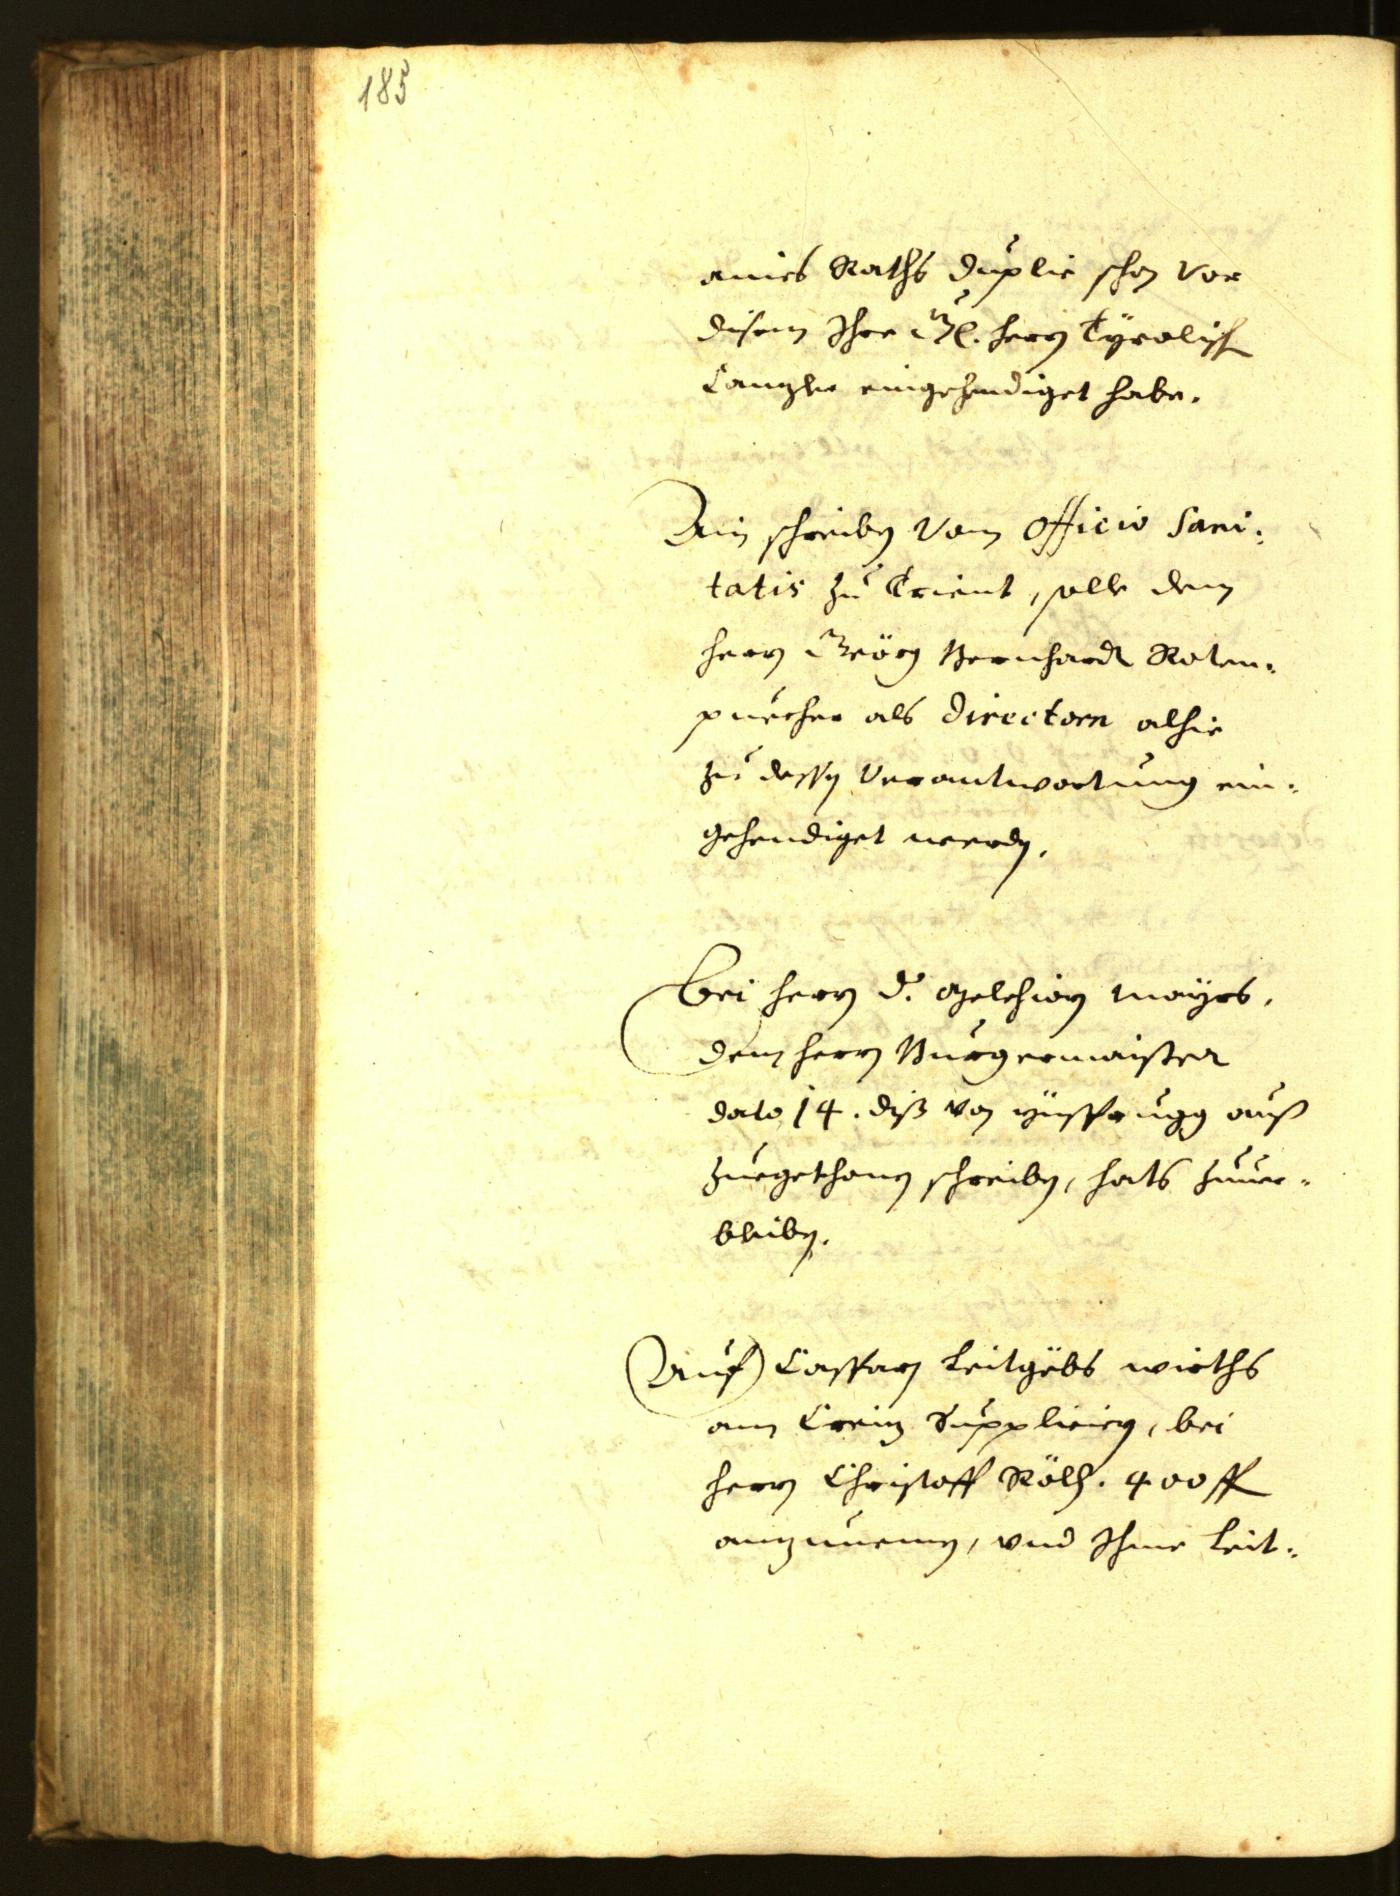 185
aines Raths duplic schon vor
disem Ihr Gl. herrn Tyrolisch
Canzler eingehendiget habe.
Ain schreiben vom Officio Sani:
tatis zu Trient, solle dem
herrn Geörg Bernhardt Roten=
puecher als Directorn alhie
zu dessen Verantwortung ein=
gehendiget werden.
Bei herrn D. Melchiorn Mayrs,
dem herrn Burgermaister
dato 14. diß von Ynsprugg auß
zuegethanen schreiben, hats zuuer=
bleiben.
Auf Casparn Leitgebs wirths
am Creiz Suppliciern, bei
herrn Christoff Röll. 400 fl
anzunemen, vnd Ihme Leit=